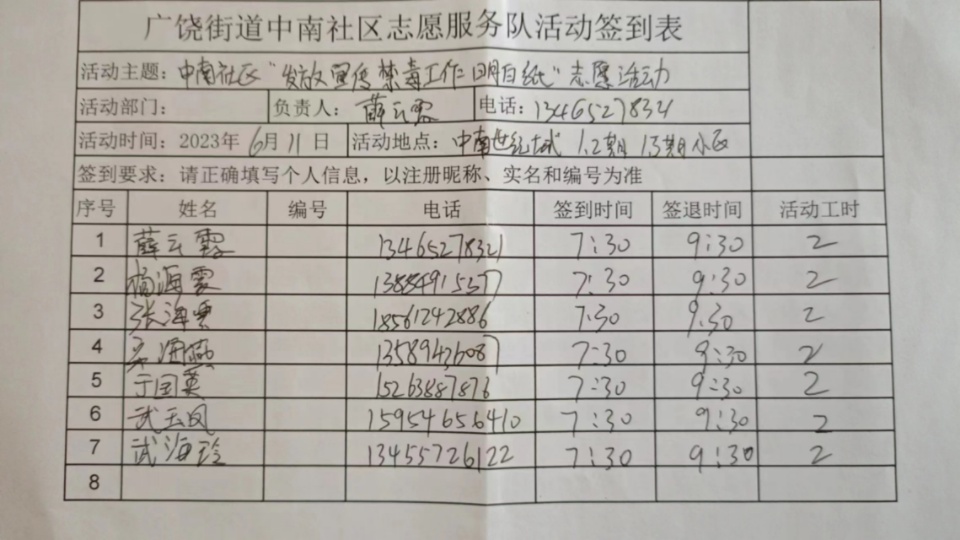 广饶街道中南社区志愿服务队活动签到表
活动主题：中南社区“发放宣传禁毒工作明白纸”志愿活动
活动部门： 负责人：薛云霞 电话：13465278321
活动时间：2023年 6月 11日 活动地点：中南世纪城 1.2期 13期小区
签到要求：请正确填写个人信息，以注册昵称、实名和编号为准
序号 姓名 编号 电话 签到时间 签退时间 活动工时
1 薛云霞 13465278321 7:30 9:30 2
2 杨海霞 13884915577 7:30 9:30 2
3 张海燕 18561242886 7:30 9:30 2
4 海燕 7:30 9:30 2
5 于国英 15263887876 7:30 9:30 2
6 武玉凤 15954656410 7:30 9:30 2
7 武海玲 13455726122 7:30 9:30 2
8